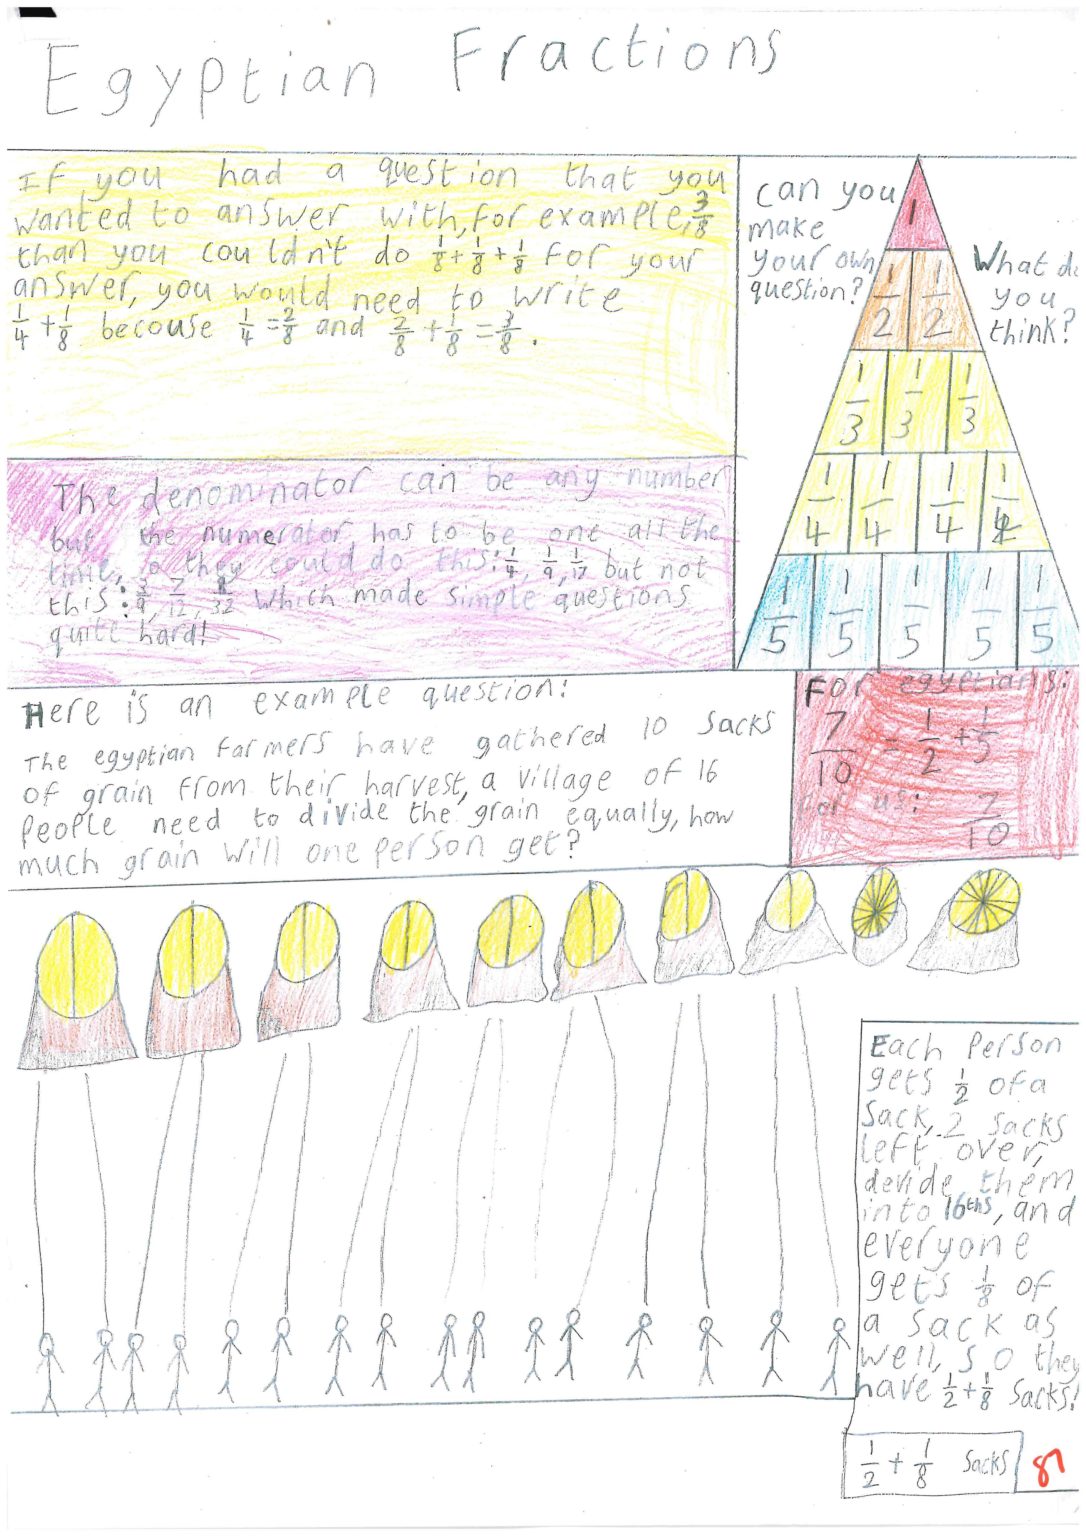 Egyptian Fractions
If you had a question that you
wanted to answer with, for example, 3/8
than you couldn't do 1/8+1/8+1/8 for your
answer, you would need to write
1/4+1/8 becouse 1/4=2/8 and 2/8+1/8=3/8.
can you
make
your own
question?
What do
you
think?
1
1/2 1/2
1/3 1/3 1/3
1/4 1/4 1/4 1/4
1/5 1/5 1/5 1/5 1/5
The denominator can be any number
but the numerator has to be one all the
time, so they could do this: 1/4, 1/9, 1/17 but not
this: 3/9, 7/12, 8/32 which made simple questions
quite hard!
Here is an example question:
The egyptian farmers have gathered 10 sacks
of grain from their harvest, a village of 16
people need to divide the grain equally, how
much grain will one person get?
For egyptians:
7/10 = 1/2 + 1/5
for us: 7/10
Each Person
gets 1/2 of a
Sack, 2 sacks
left over,
devide them
into 16ths, and
everyone
gets 1/8 of
a sack as
well, so they
have 1/2+1/8 sacks!
1/2 + 1/8 sacks
87